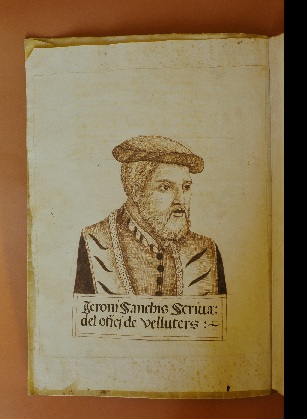 Jeroni Sanchis Scriua:
del ofici de Velluters :~